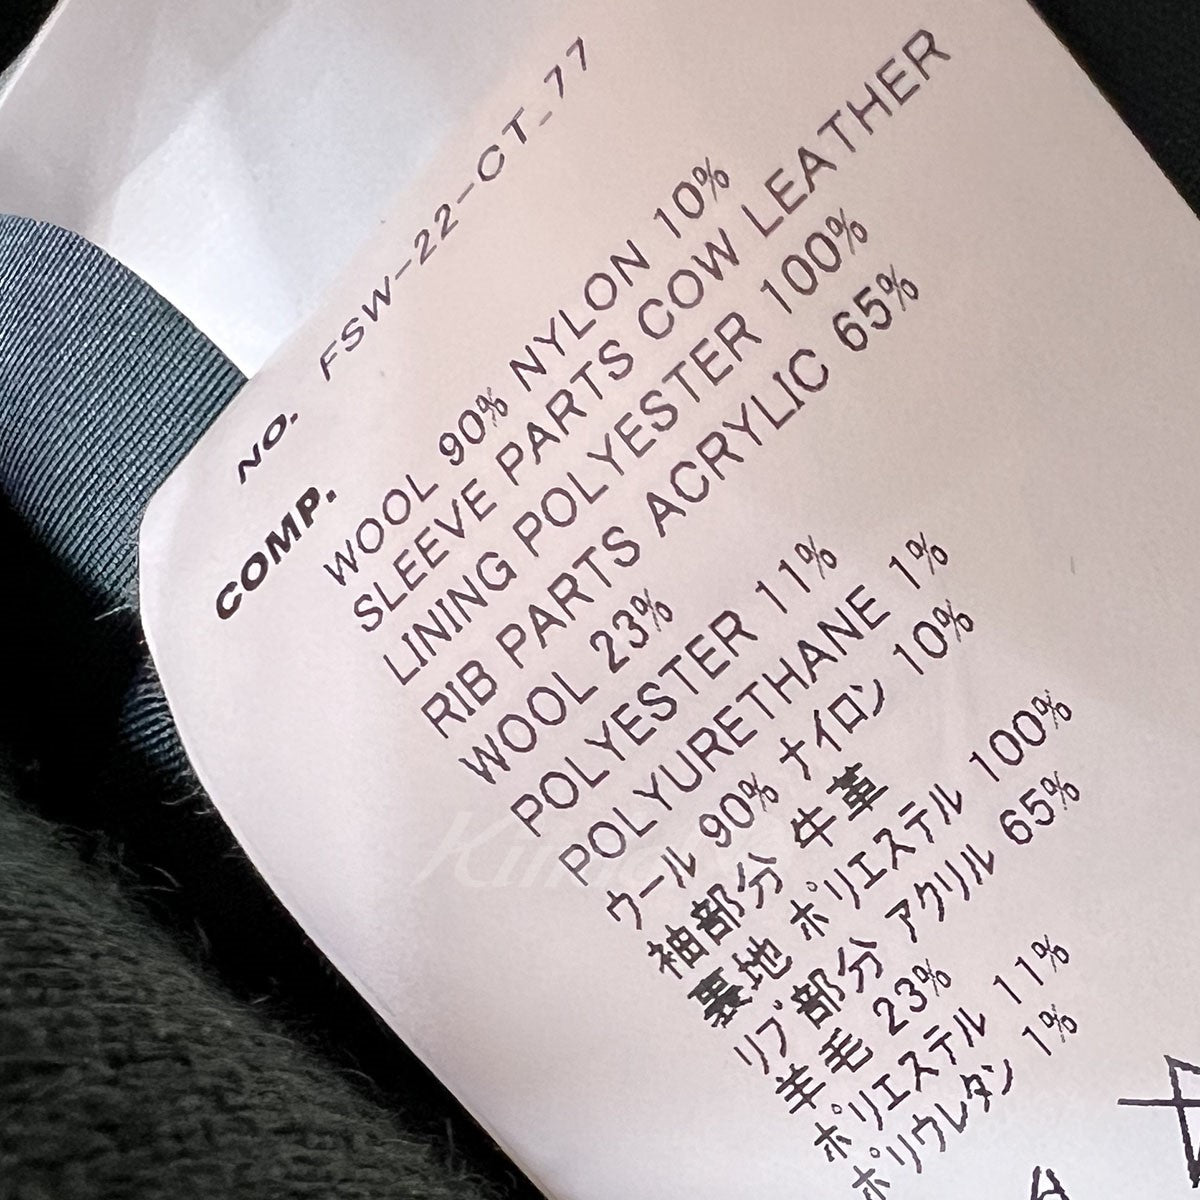 NO. FSW-22-CT_77
COMP.
WOOL 90% NYLON 10%
SLEEVE PARTS COW LEATHER
LINING POLYESTER 100%
RIB PARTS ACRYLIC 65%
WOOL 23%
POLYESTER 11%
POLYURETHANE 1%
ウール 90% ナイロン 10%
袖部分 牛革
裏地 ポリエステル 100%
リブ部分 アクリル 65%
羊毛 23%
ポリエステル 11%
ポリウレタン 1%